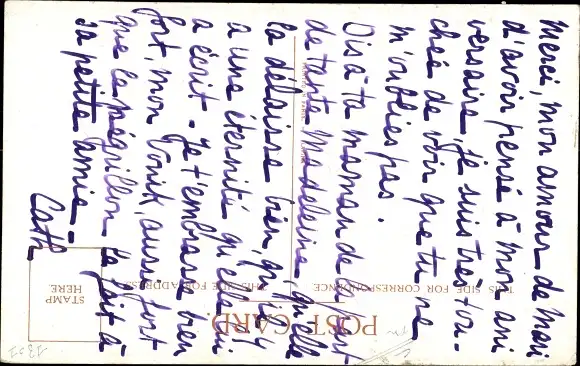 Merci, mon amour de mari
d'avoir pensé à mon ani
versaire, je suis très tou-
chée de voir que tu ne
m'oublies pas.
Dis à ta maman de la part
de tante Madeleine, qu'elle
la délaisse bien, qu'il y
a une éternité qu'elle lui
a écrit - Je t'embrasse bien
fort, mon Vonik, aussi fort
que le négrillon la fait à
sa petite amie -
Cath
POST CARD
THIS SIDE FOR CORRESPONDENCE
THIS SIDE FOR ADDRESS
STAMP
HERE